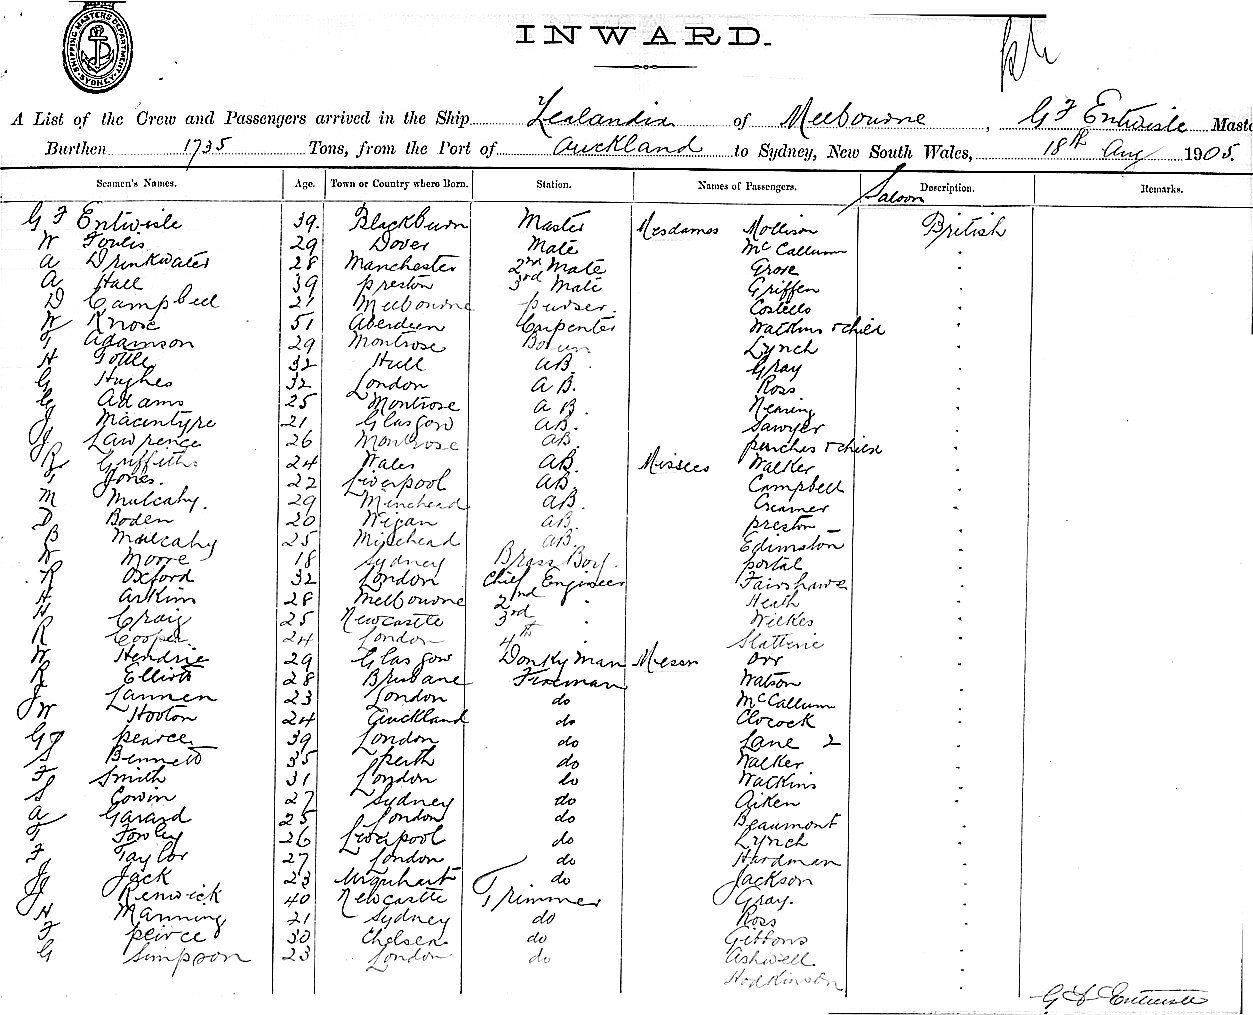 SHIPPING MASTERS DEPARTMENT SYDNEY
INWARD.
A List of the Crew and Passengers arrived in the Ship Zealandia of Melbourne, G F Entwisle Maste
Burthen 1735 Tons, from the Port of Auckland to Sydney, New South Wales, 18th Aug 1905.
Seamen's Names. Age. Town or Country where Born. Station. Names of Passengers. Saloon Description. Remarks.
G F Entwisle 39. Blackburn Master Mesdames Mollison British
W Foulis 29 Dover Mate McCallum
A Drinkwater 28 Manchester 2nd Mate Grose
A Hall 39 Preston 3rd Mate Griffen
D Campbell 21 Melbourne Purser. Costello
W Knose 51 Aberdeen Carpenter Watkins & child
T Adamson 29 Montrose Lynch
H Tottle 32 Hull AB. Gray
G Hughes 32 London AB. Ross
G Adams 25 Montrose AB. Nearing
J Macintyre 21 Glasgow AB. Sawyer
J Lawrence 26 Montrose AB. Perches & child
R Griffiths 24 Wales AB. Missees Walker
T Jones. 22 Liverpool AB. Campbell
M Mulcahy. 29 Minehead AB. Creamer
D Boden 20 Wigan AB. Preston
B Mulcahy 25 Minehead AB. Edimston
W Moore 18 Sydney Brass Boy. Portal
R Oxford 32 London Chief Engineer Fairshawe
H Atkins 28 Melbourne 2nd Heath
H Craig 25 Newcastle 3rd Wilkes
R Cooper 24 London 4th Slatterie
W Hendrie 29 Glasgow Donkyman Messrs Orr
R Elliott 28 Brisbane Fireman Watson
J Lannen 23 London do McCallum
W Hooton 24 Auckland do Clocock
G J Pearce 39 London do Lane 2
S Bennett 35 Perth do Walker
F Smith 31 London do Watkins
S Cowin 27 Sydney do Aiken
A Garard 25 London do Beaumont
T Fowley 26 Liverpool do Lynch
F Taylor 27 London do Hardman
J Jack 23 Urquhart do Jackson
J Renwick 40 Newcastle Trimmer Gray.
H Manning 21 Sydney do Ross
F Peirce 30 Chelsea do Gibbons
G Simpson 23 London do Ashwell
Hodkinson
G F Entwisle